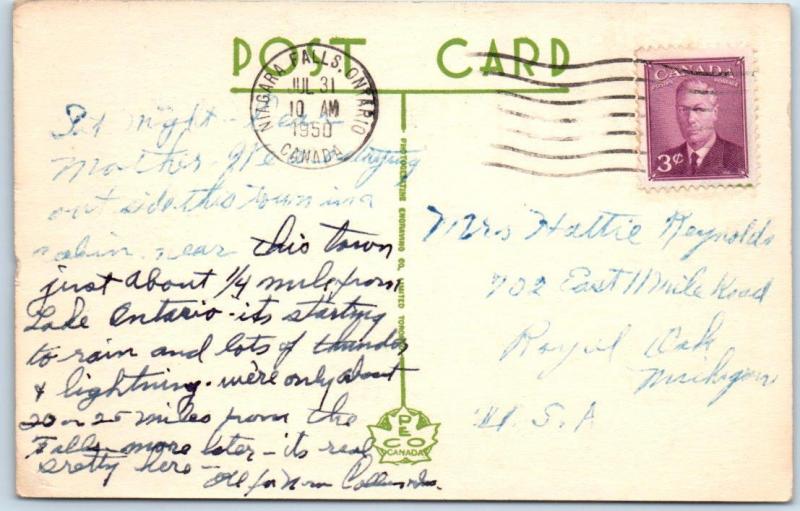 POST CARD
NIAGARA FALLS, ONTARIO
JUL 31
10 AM
1950
CANADA
CANADA
POSTES POSTAGE
3¢
Sat night - Dear
Mother - We
out side this town in a
cabin near this town
just about 1/4 mile from
Lake Ontario - its starting
to rain and lots of thunder
& lightning - we're only about
20 or 25 miles from the
Falls - more later - its real
pretty here -
PHOTOGELATINE ENGRAVING CO. LIMITED TORONTO
PECO
CANADA
Mrs Hattie Reynolds
702 East 11 Mile Road
Royal Oak
Michigan
U.S.A